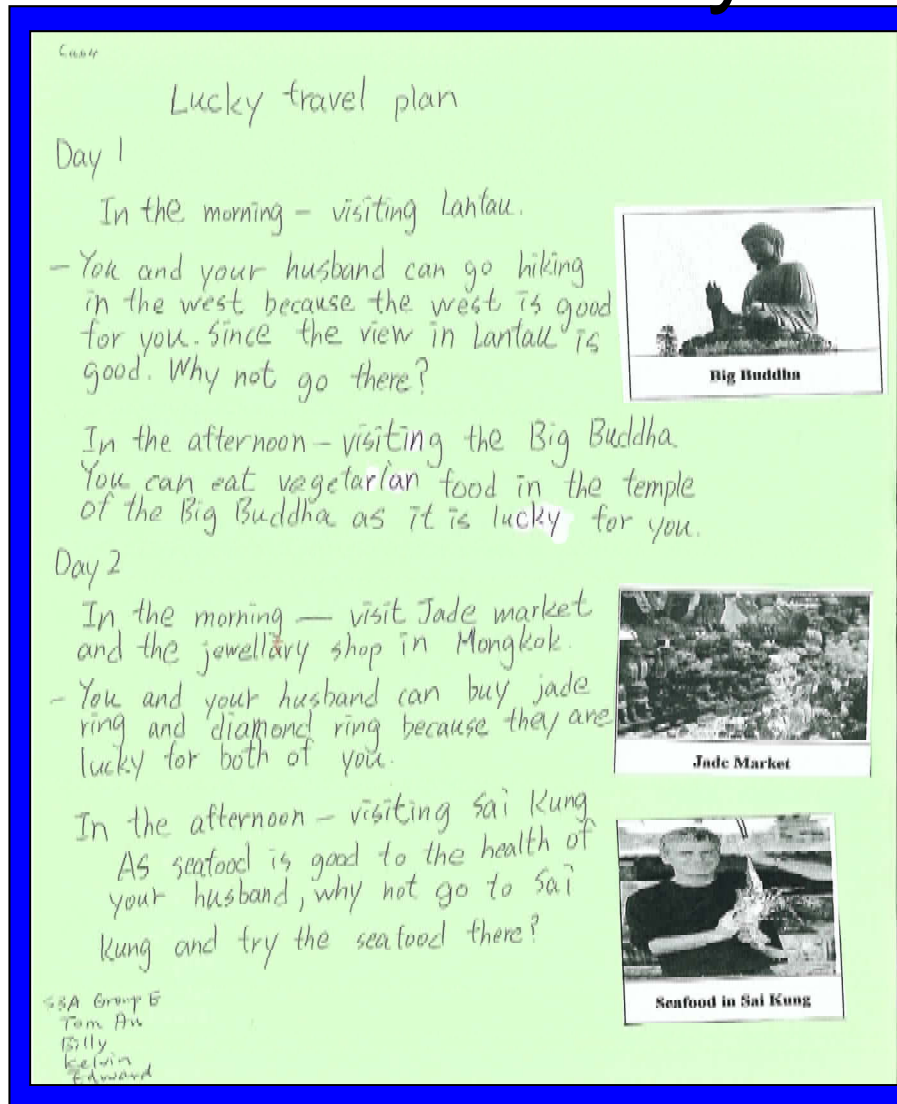 Lucky travel plan
Day 1
In the morning – visiting Lantau.
– You and your husband can go hiking
in the west because the west is good
for you. Since the view in Lantau is
good. Why not go there?
Big Buddha
In the afternoon – visiting the Big Buddha
You can eat vegetarian food in the temple
of the Big Buddha as it is lucky for you.
Day 2
In the morning — visit Jade market
and the jewellary shop in Mongkok.
– You and your husband can buy jade
ring and diamond ring because they are
lucky for both of you.
Jade Market
In the afternoon – visiting Sai Kung
As seafood is good to the health of
your husband, why not go to Sai
Kung and try the seafood there?
Seafood in Sai Kung
Group E
Tom
Billy
Kelvin
Edward